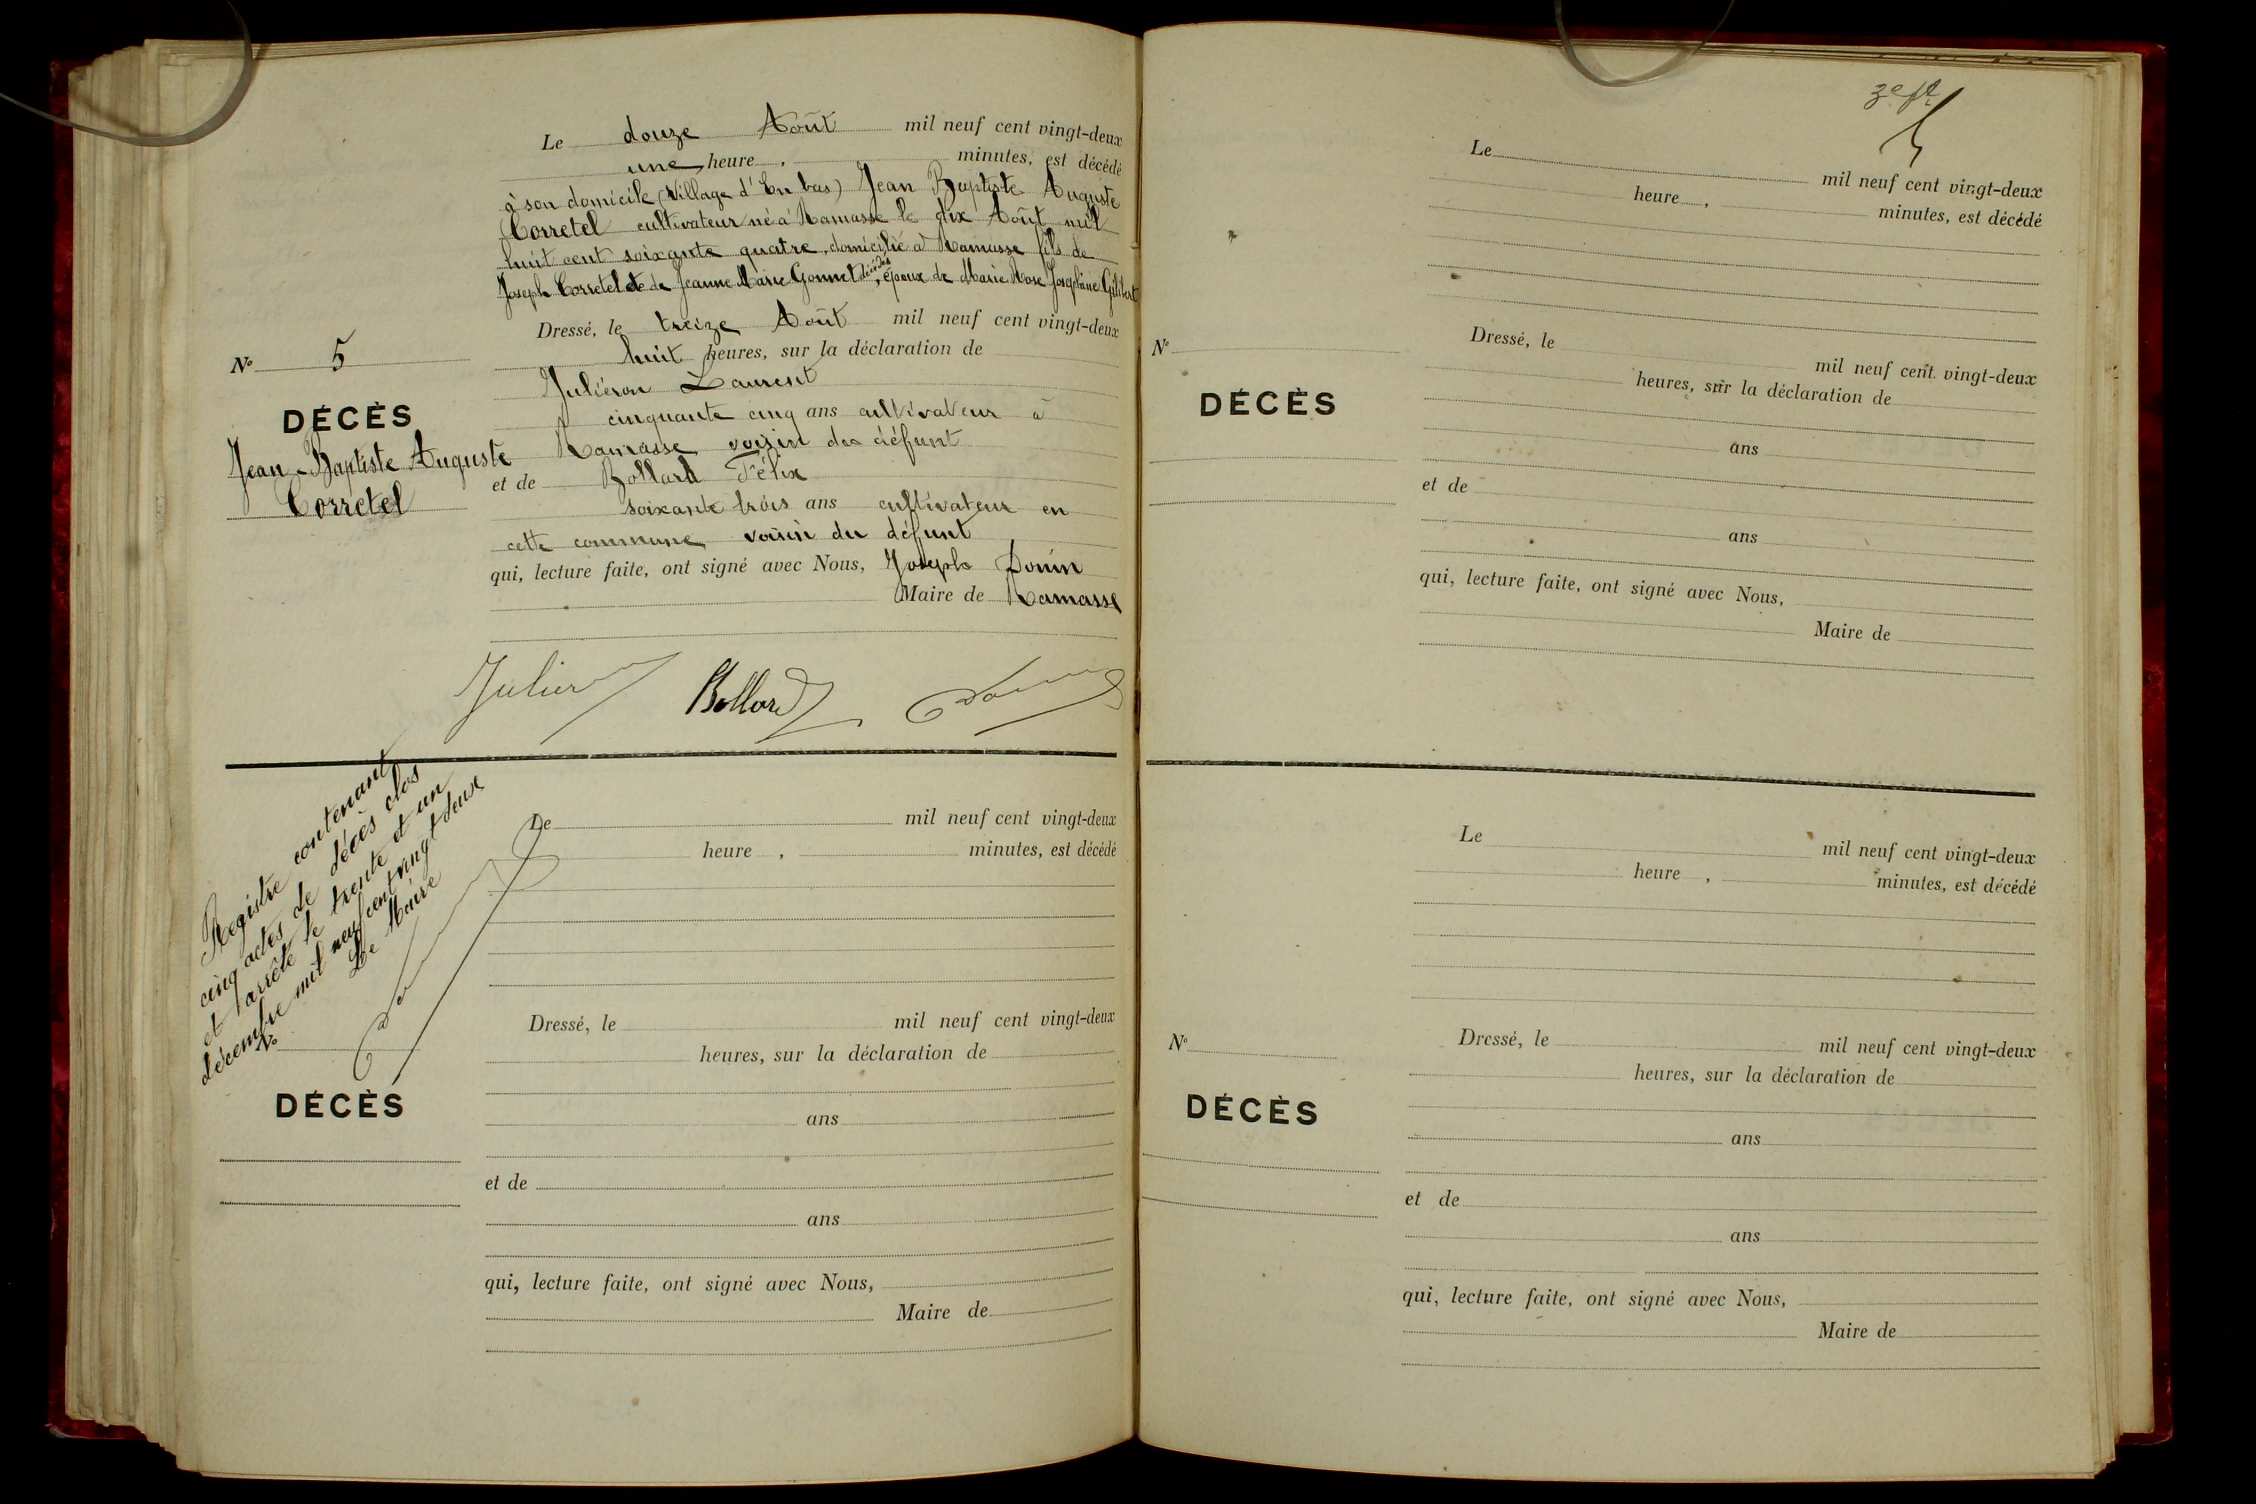 Le douze Août mil neuf cent vingt-deux
une heure , minutes, est décédé
à son domicile (Village d'En bas) Jean Baptiste Auguste
Corretel cultivateur né à Ramasse le dix Août mil
huit cent soixante quatre, domicilié à Ramasse fils de
Joseph Corretel et de Jeanne Marie Gonnet décédés, époux de Marie Rose Joséphine Gilibert
Dressé, le treize Août mil neuf cent vingt-deux
huit heures, sur la déclaration de
Juliéron Laurent
cinquante cinq ans cultivateur à
Ramasse voisin du défunt
et de Bollard Félix
soixante trois ans cultivateur en
cette commune voisin du défunt
qui, lecture faite, ont signé avec Nous, Joseph Donin
Maire de Ramasse
No 5
DÉCÈS
Jean-Baptiste Auguste
Corretel
Bollard
Registre contenant
cinq actes de décès clos
et arrêté le trente et un
décembre mil neuf cent vingt deux
Le Maire
Le mil neuf cent vingt-deux
heure , minutes, est décédé
Dressé, le mil neuf cent vingt-deux
heures, sur la déclaration de
ans
et de
ans
qui, lecture faite, ont signé avec Nous,
Maire de
No
DÉCÈS
Le mil neuf cent vingt-deux
heure , minutes, est décédé
Dressé, le mil neuf cent vingt-deux
heures, sur la déclaration de
ans
et de
ans
qui, lecture faite, ont signé avec Nous,
Maire de
No
DÉCÈS
Le mil neuf cent vingt-deux
heure , minutes, est décédé
Dressé, le mil neuf cent vingt-deux
heures, sur la déclaration de
ans
et de
ans
qui, lecture faite, ont signé avec Nous,
Maire de
No
DÉCÈS